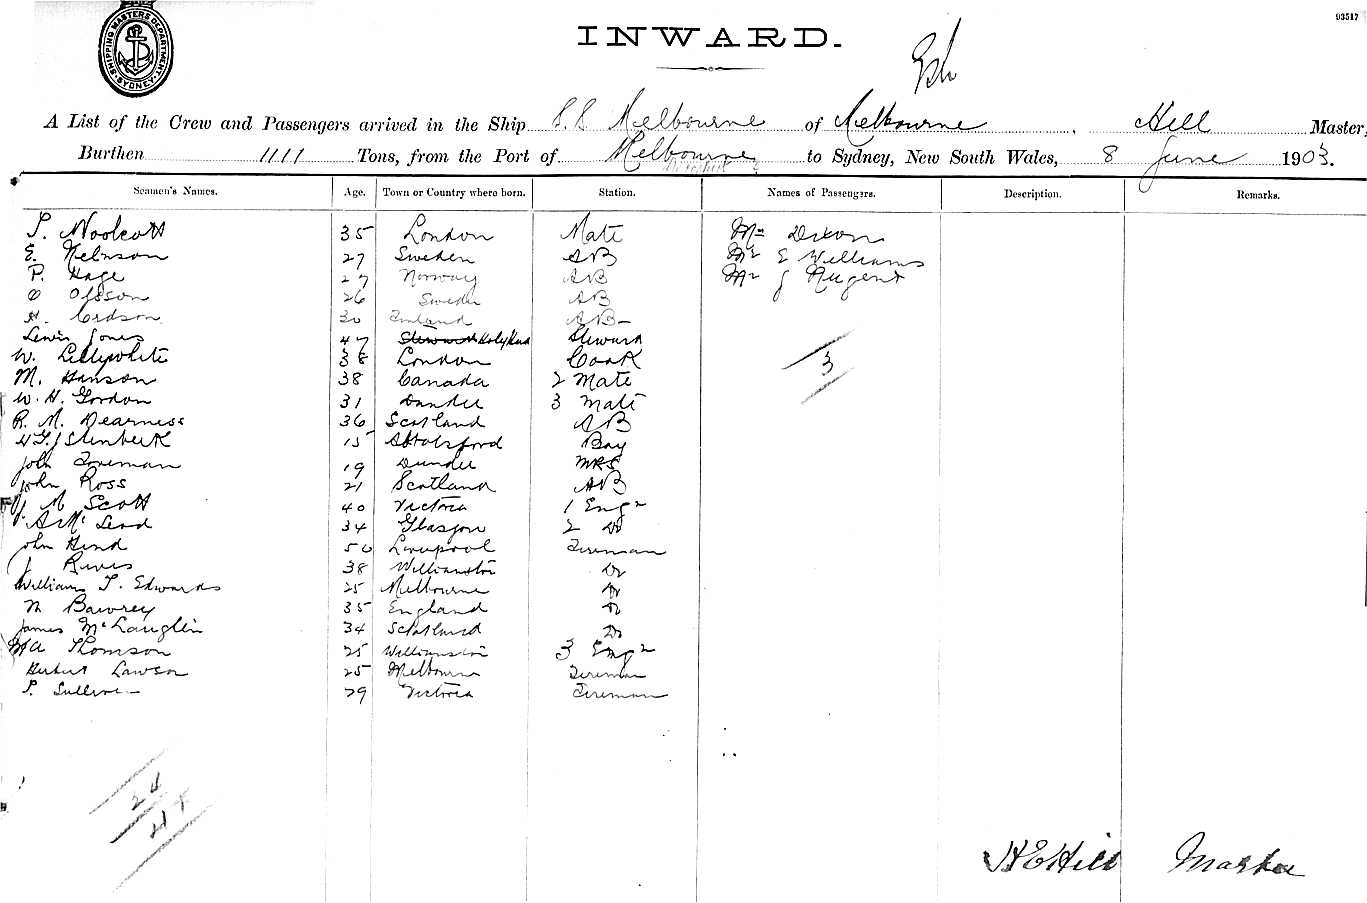 93517
SHIPPING MASTERS DEPARTMENT. SYDNEY
INWARD.
A List of the Crew and Passengers arrived in the Ship S.S Melbourne of Melbourne, Hill Master,
Burthen 1111 Tons, from the Port of Melbourne to Sydney, New South Wales, 8 June 1903.
Seamen's Names. Age. Town or Country where born. Station. Names of Passengers. Description. Remarks.
T. Woolcott 35 London Mate Mr Dixon
E. Nelsson 27 Sweden AB Mr E Williams
P. Hage 27 Norway AB Mr J Nugent
O Olsson 26 Sweden AB
30 Finland AB
Lewis Jones 47 Steward Holyhead Steward
W. Lillywhite 38 London Cook
3
M. Hanson 38 Canada 2 Mate
W. H. Gordon 31 Dundee 3 Mate
R. M. Dearness 36 Scotland AB
15 Abbotsford Boy
John Foreman 19 Dundee
John Ross 21 Scotland AB
J M Scott 40 Victoria 1 Engr
A Mc Leod 34 Glasgow 2 Do
John Hind 50 Liverpool Fireman
J Rives 38 Williamstown Do
William T. Edwards 25 Melbourne Do
35 England Do
James McLauglin 34 Scotland Do
Thomson 25 Williamstown 3 Engr
Herbert Lawson 25 Melbourne Fireman
T. Sullivan 29 Victoria Fireman
24
H E Hill Master